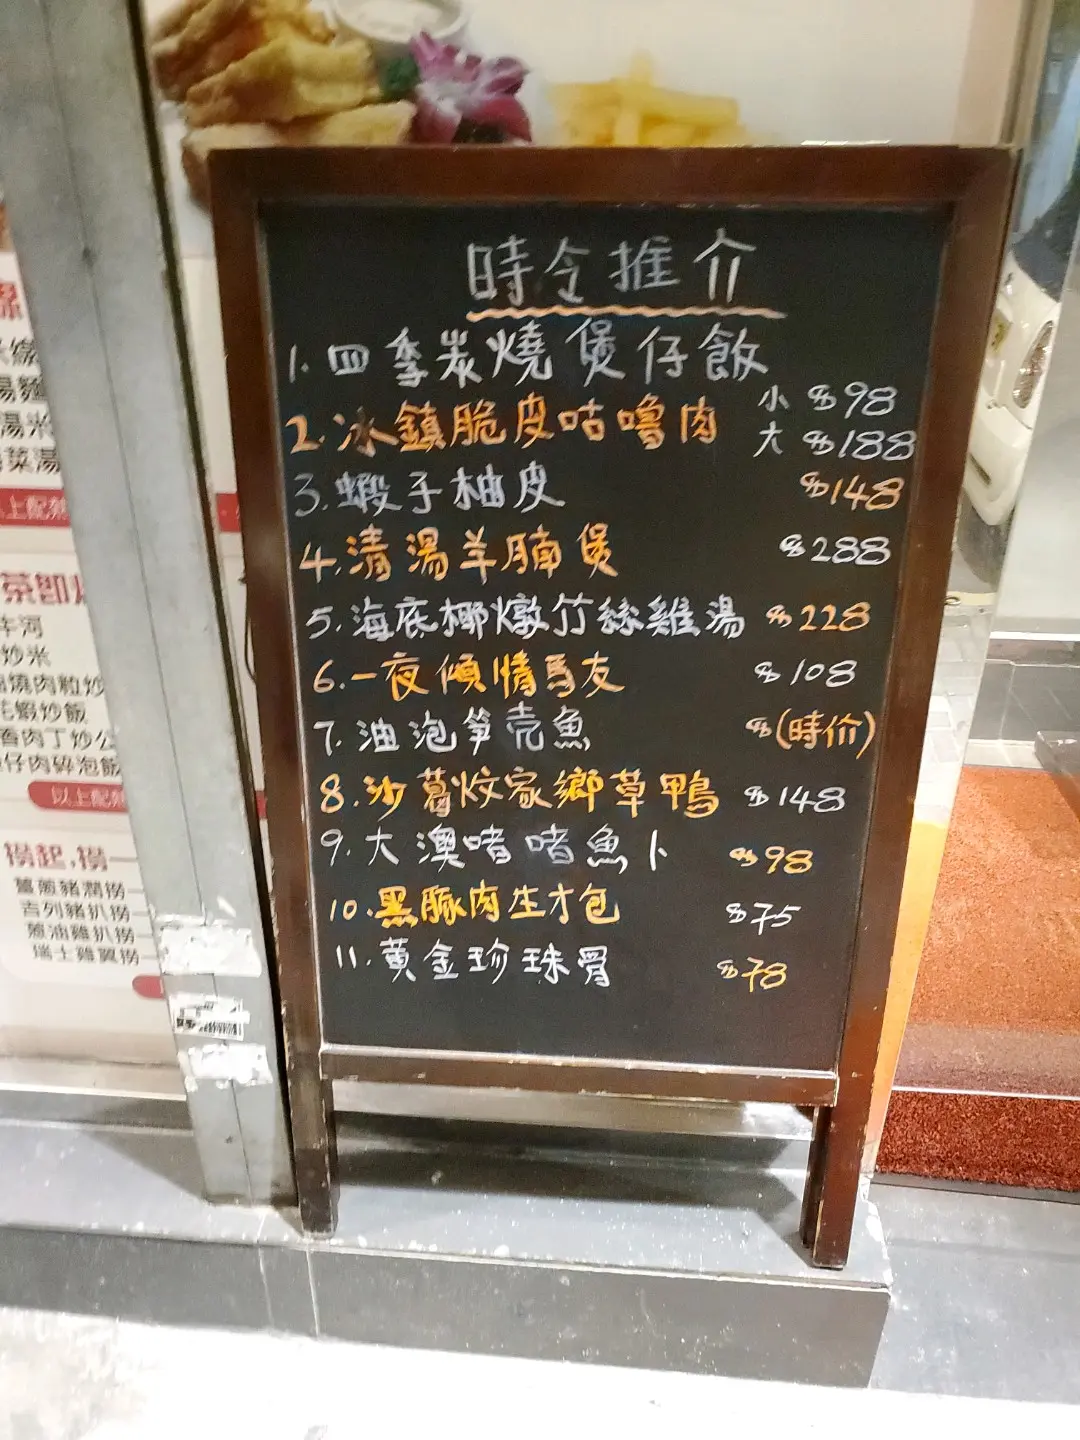 時令推介
1. 四季炭燒煲仔飯
2. 冰鎮脆皮咕嚕肉 小 $98
大 $188
3. 蝦子柚皮 $148
4. 清湯羊腩煲 $288
5. 海底椰燉竹絲雞湯 $228
6. 一夜傾情馬友 $108
7. 油泡笋壳魚 $(時价)
8. 沙葛炆家鄉草鴨 $148
9. 大澳啫啫魚卜 $98
10. 黑豚肉生才包 $75
11. 黃金珍珠骨 $78
湯米
菜湯
上配熱
茶即
河
炒米
燒肉粒炒
蝦炒飯
香肉丁炒
仔肉碎泡飯
以上配熱
撈起.撈一
薑蔥豬潤撈
吉列豬扒撈
蔥油雞扒撈
瑞士雞翼撈